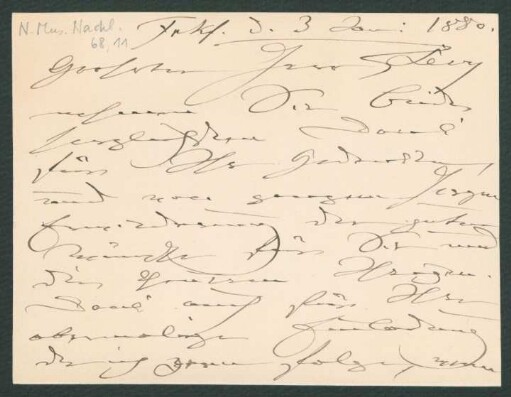 N. Mus. Nachl.
68,11
Frkf. d. 3 Jan: 1880.
Geehrter Herr Levy
nehmen Sie beide
herzlichsten Dank
für Ihr Gedenken,
und von ganzem Herzen
Erwiederung der guten
Wünsche für Sie und
die theuren Ihrigen.
Dank auch für Ihre
abermalige Einladung
der ich gern folge, wenn